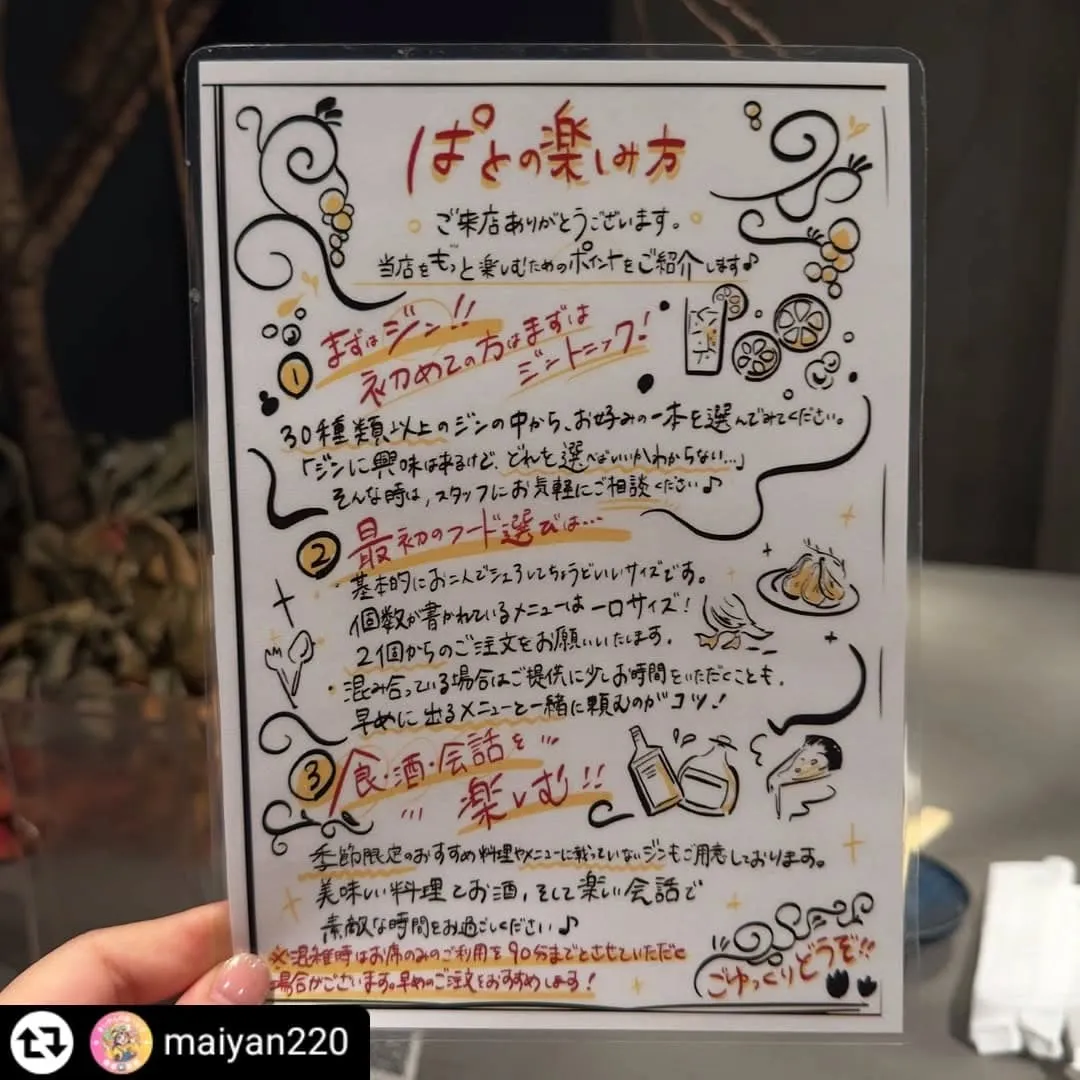 ぱとの楽しみ方
ご来店ありがとうございます。
当店をもっと楽しむためのポイントをご紹介します♪
① まずはジン!!
初めての方はまずは
ジントニック!
30種類以上のジンの中から、お好みの一本を選んでみてください。
「ジンに興味は来るけど、どれを選べばいいかわからない…」
そんな時は、スタッフにお気軽にご相談ください♪
② 最初のフード選びは…
・基本的にお二人でシェアしてちょうどいいサイズです。
個数が書かれているメニューは一口サイズ!
2個からのご注文をお願いいたします。
・混み合っている場合はご提供に少しお時間をいただくことも、
早めに出るメニューと一緒に頼むのがコツ!
③ 食・酒・会話を
楽しむ!!
季節限定のおすすめ料理やメニューに載っていないジンもご用意しております。
美味しい料理とお酒、そして楽しい会話で
素敵な時間をお過ごしください♪
※混雑時はお席のみのご利用を90分までとさせていただく
場合がございます。早めのご注文をおすすめします!
ごゆっくりどうぞ!!
maiyan220